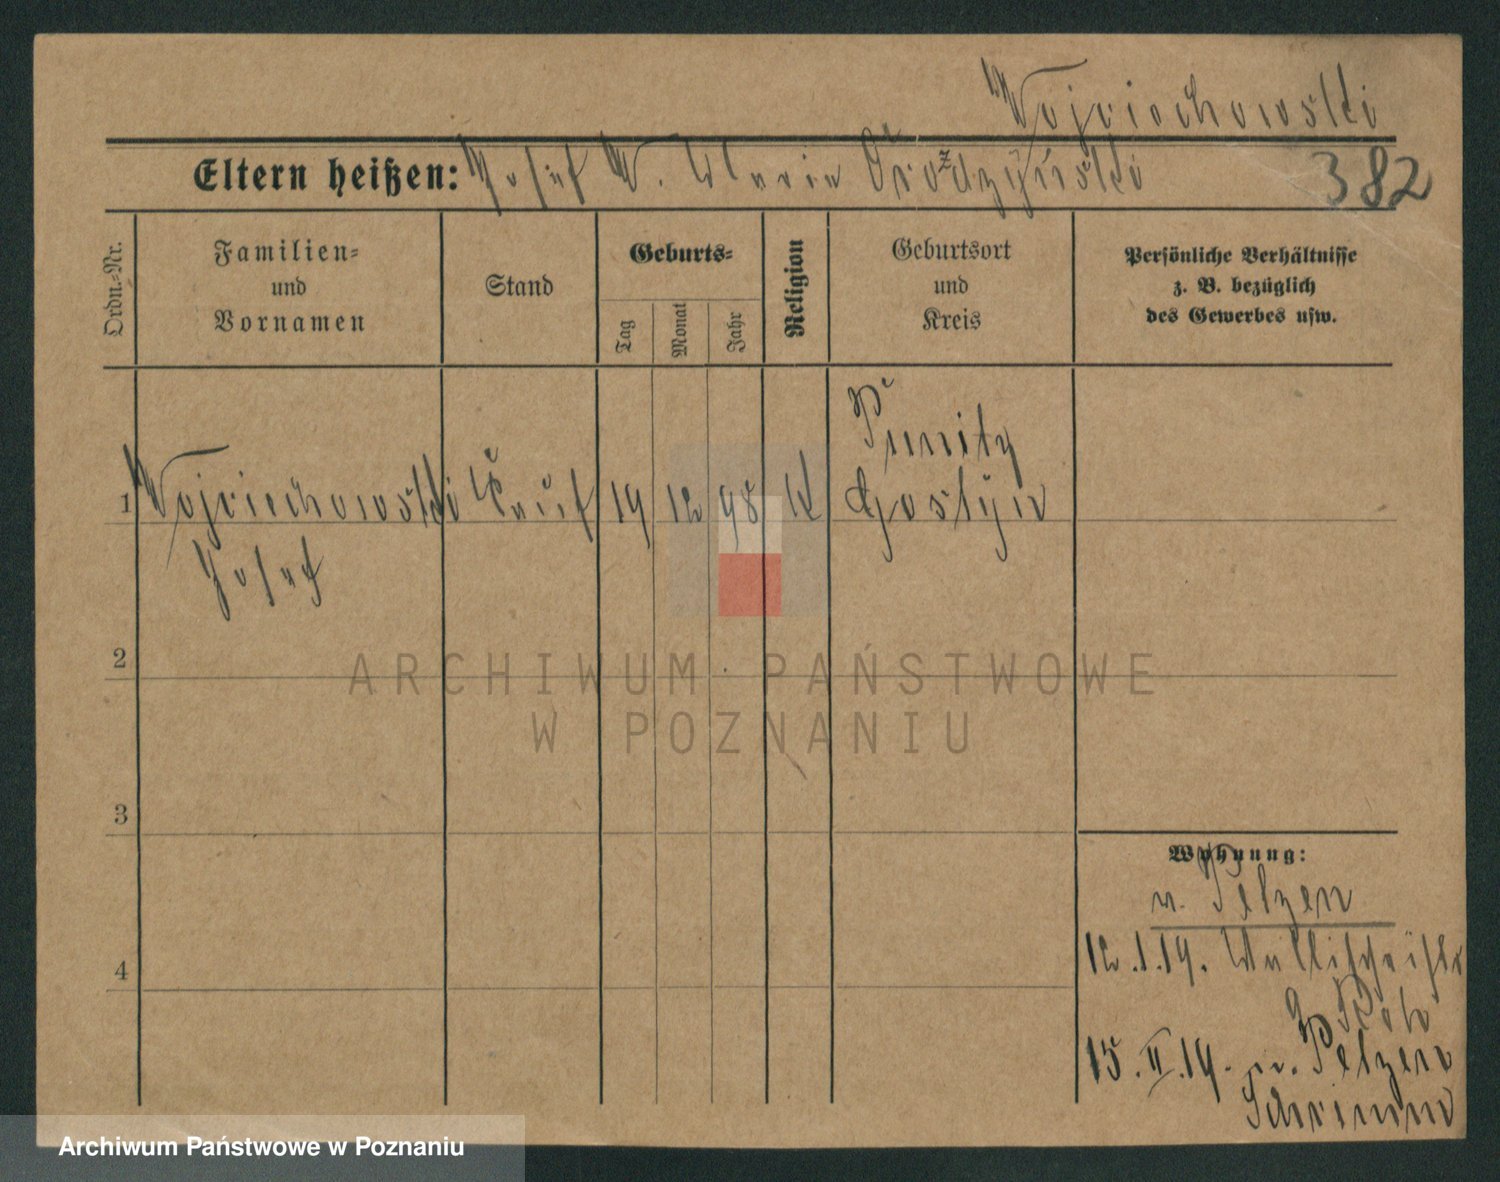 Wojciechowski
Eltern heißen: Josef W. Maria
382
Ordn.-Nr.
Familien-
und
Vornamen
Stand
Geburts-
Tag
Monat
Jahr
Religion
Geburtsort
und
Kreis
Persönliche Verhältnisse
z. B. bezüglich
des Gewerbes usw.
Punitz
1 Wojciechowski 19 12 98 K Gostyn
Josef
2
3
4
Wohnung:
n. Pelzen
12.1.19. Wallischei
15.II.19. n. Pelzen
Schrimm
ARCHIWUM PAŃSTWOWE
W POZNANIU
Archiwum Państwowe w Poznaniu